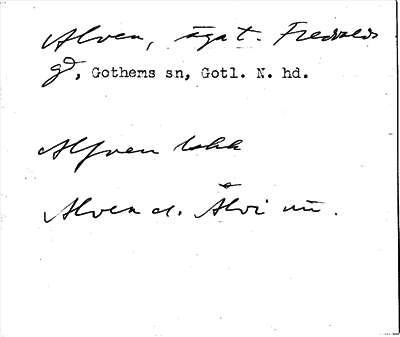 Alven, äga t. Fredvalds
gd, Gothems sn, Gotl. N. hd.
Alfven lskk
Alven el. Älvi